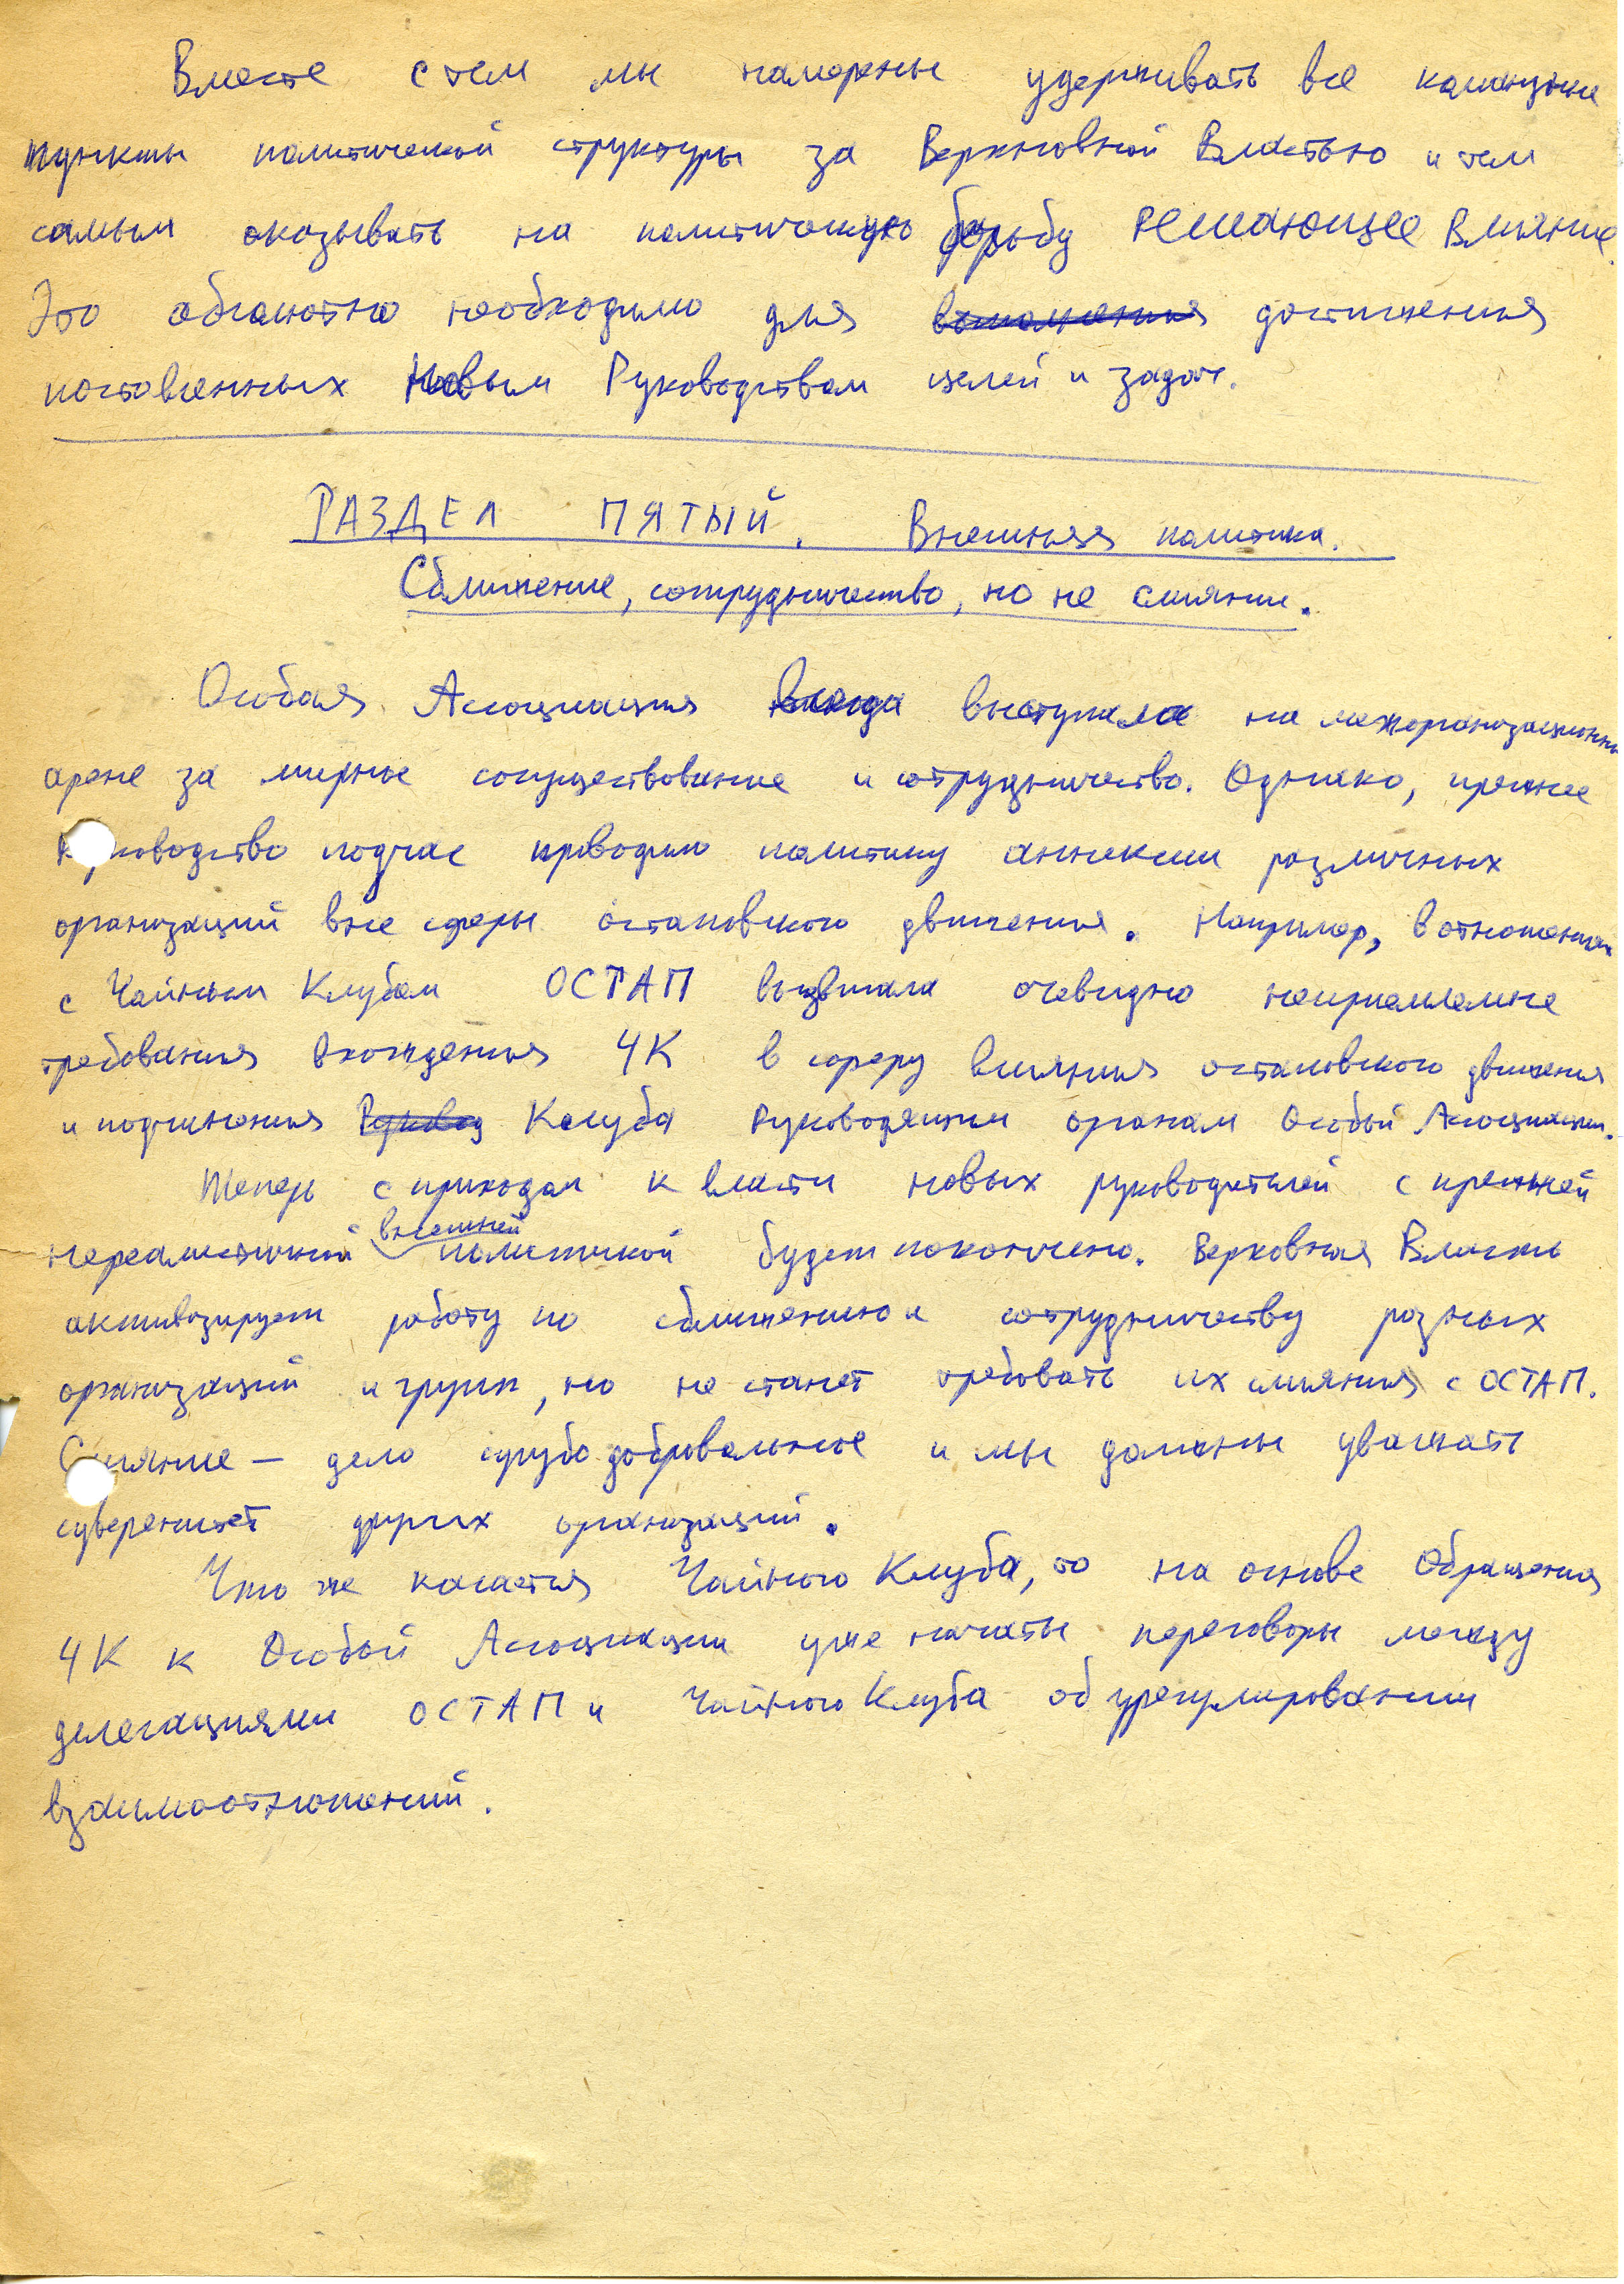 Вместе с тем мы намерены удерживать все командные
пункты политической структуры за Верховной Властью и тем
самым оказывать на политическую борьбу решающее влияние.
Это абсолютно необходимо для выполнения достижения
поставленных Новым Руководством целей и задач.
РАЗДЕЛ ПЯТЫЙ. Внешняя политика.
Сближение, сотрудничество, но не слияние.
Особая Ассоциация всегда выступала на межорганизационной
арене за мирное сосуществование и сотрудничество. Однако, прежнее
Руководство подчас проводило политику аннексии различных
организаций вне сферы остаповского движения. Например, в отношениях
с Чайным Клубом ОСТАП выдвигала очевидно неприемлемые
требования вхождения ЧК в сферу влияния остаповского движения
и подчинения Руковод Клуба руководящим органам Особой Ассоциации.
Теперь с приходом к власти новых руководителей с прежней
нереалистичной внешней политикой будет покончено. Верховная Власть
активизирует работу по сближению и сотрудничеству разных
организаций и групп, но не станет требовать их слияния с ОСТАП.
Слияние — дело сугубо добровольное и мы должны уважать
суверенитет других организаций.
Что же касается Чайного Клуба, то на основе Обращения
ЧК к Особой Ассоциации уже начаты переговоры между
делегациями ОСТАП и Чайного Клуба об урегулировании
взаимоотношений.